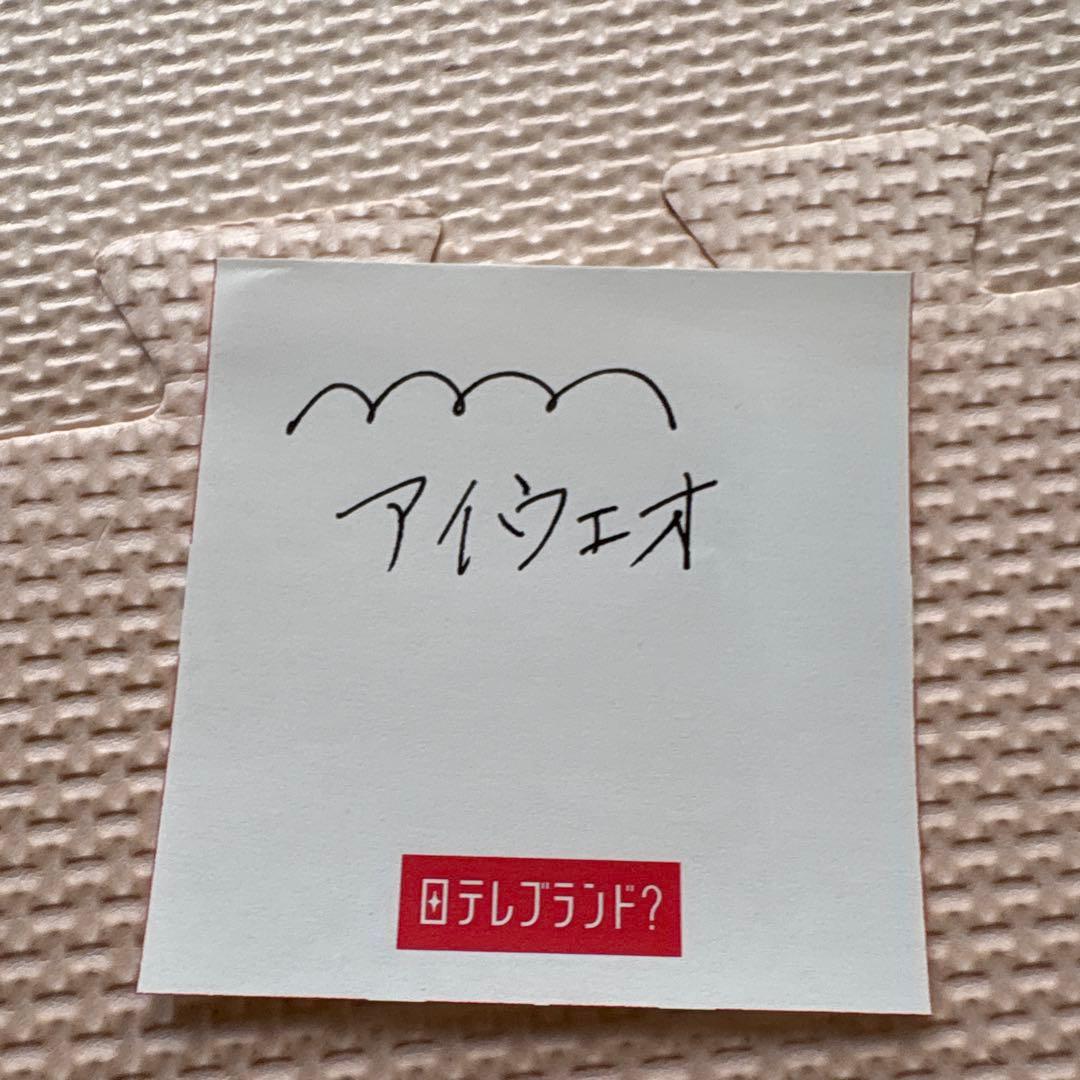 アイウエオ
日テレブランド?